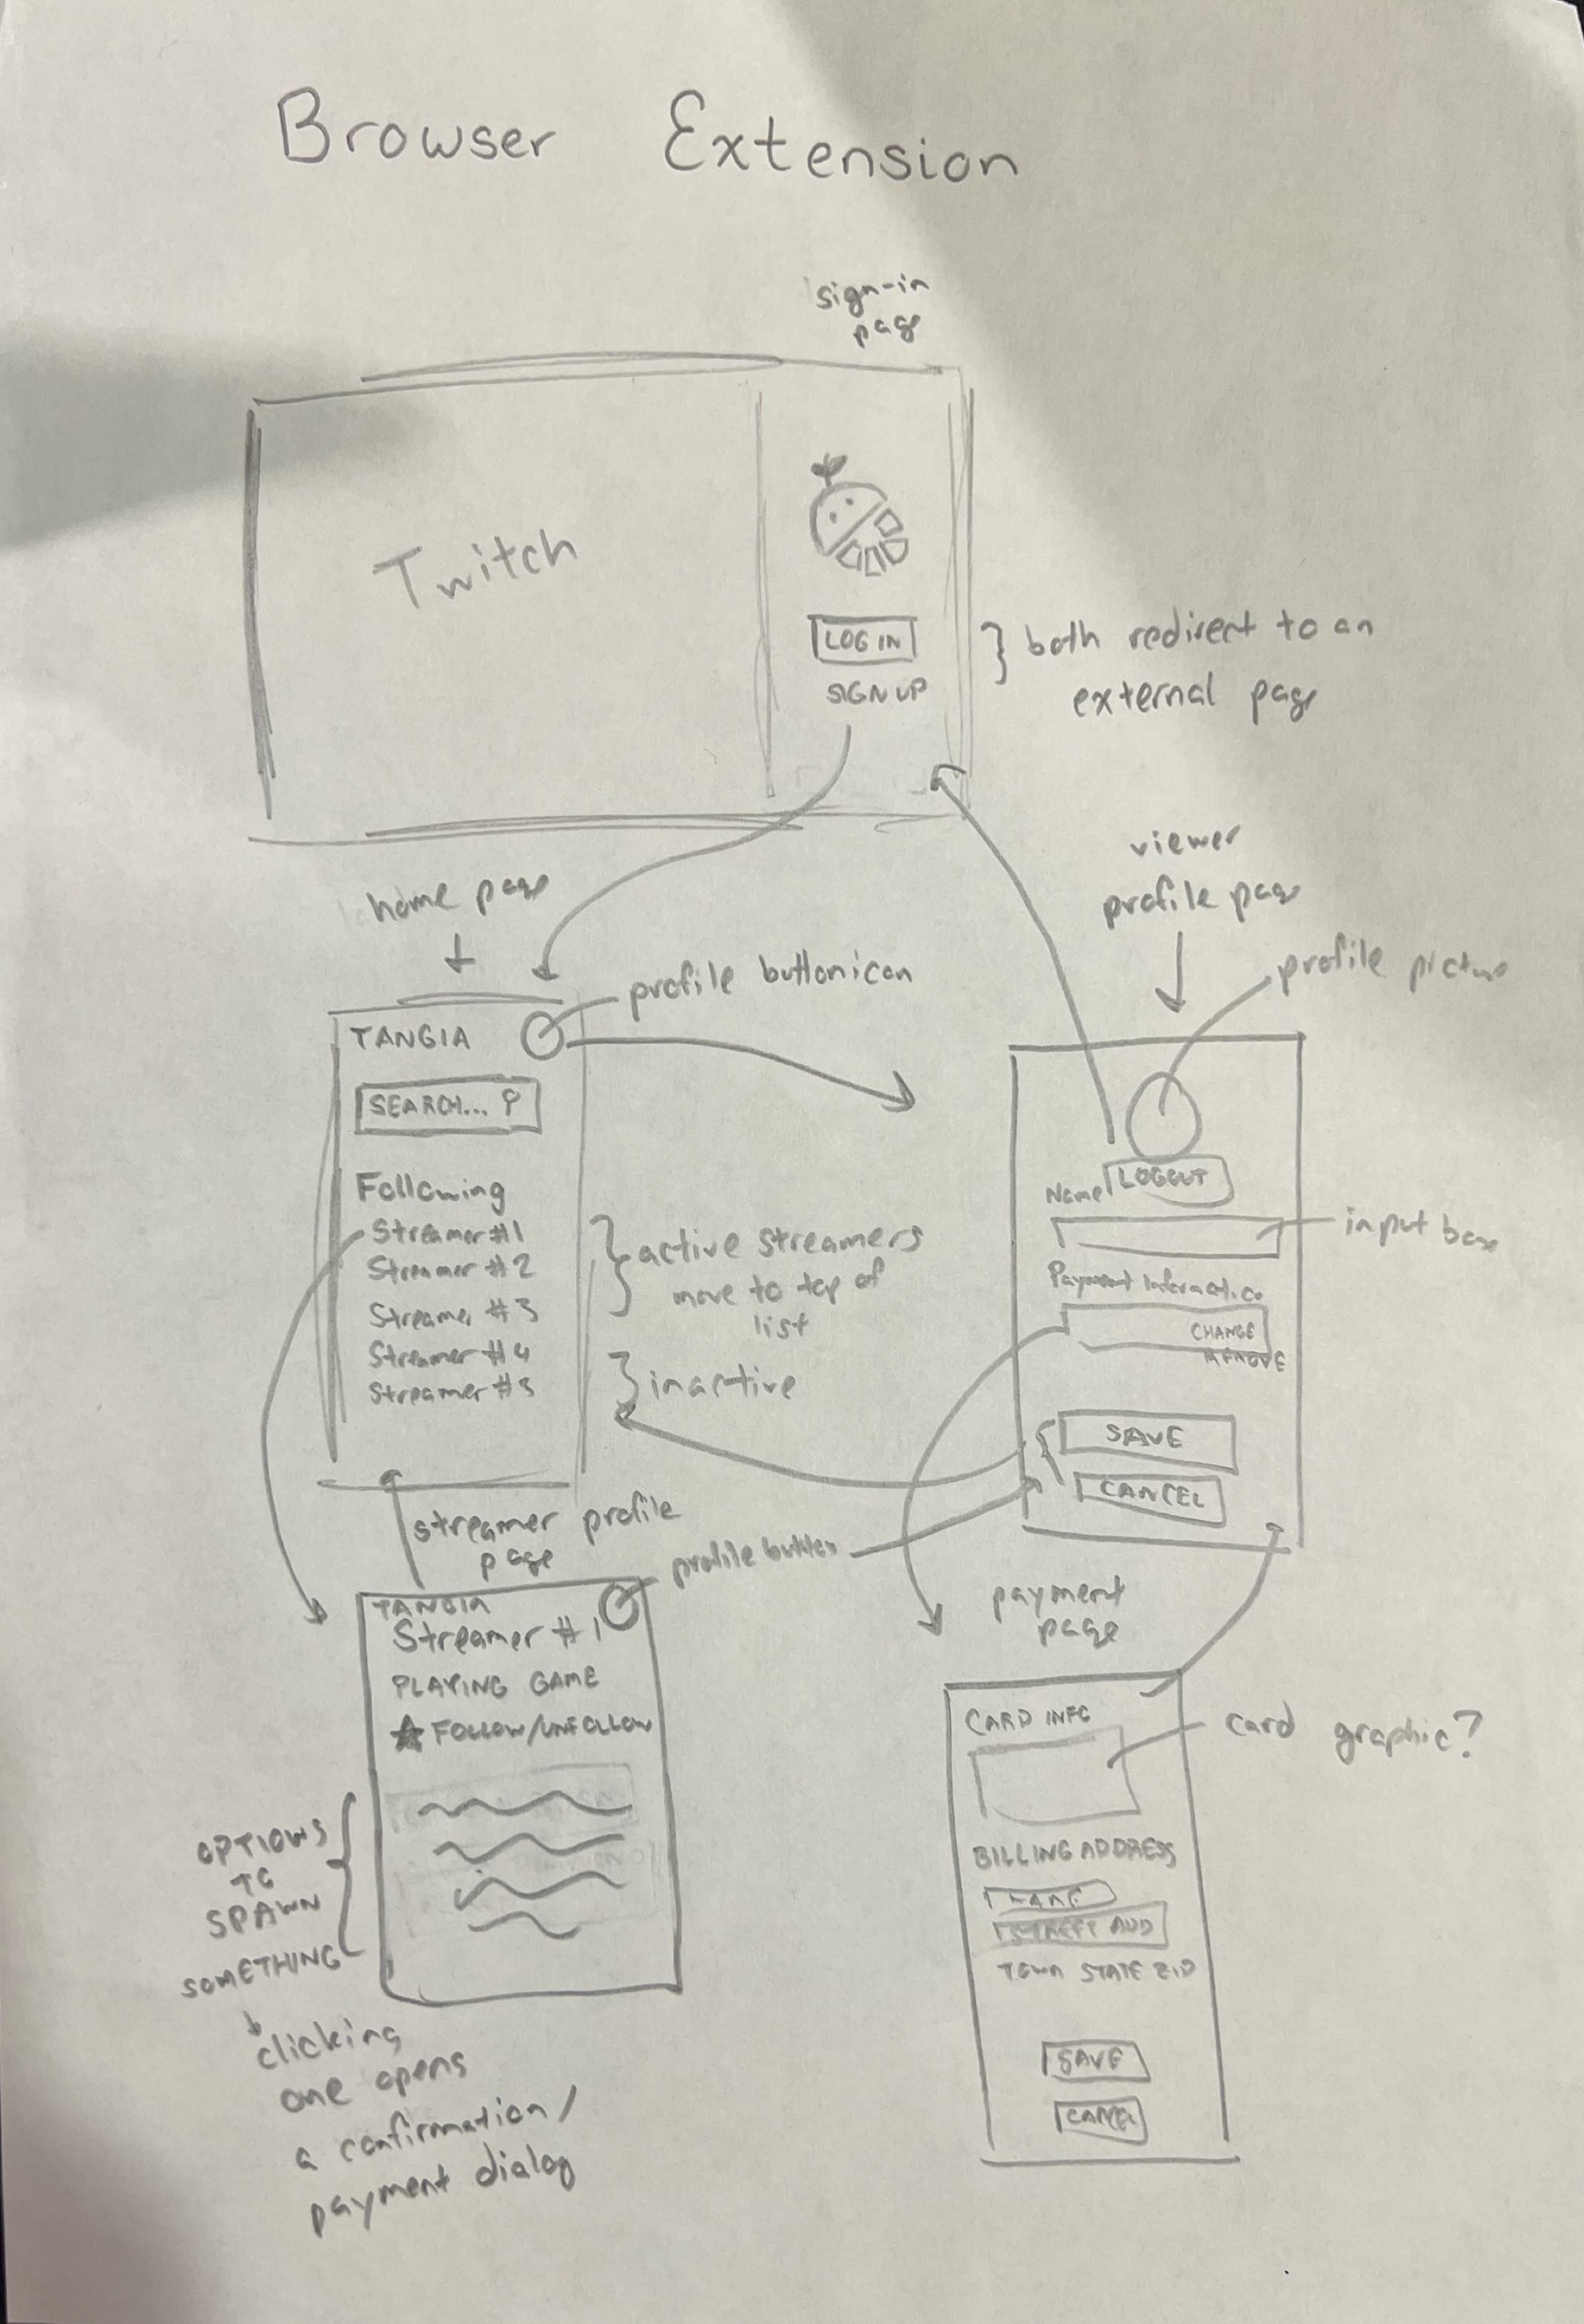 Browser Extension
sign-in
page
Twitch
LOG IN
SIGN UP
both redirect to an
external page
home page
viewer
profile page
profile button icon
profile picture
TANGIA
SEARCH...
Following
Streamer #1
Streamer #2
Streamer #3
Streamer #4
Streamer #5
active streamers
move to top of
list
inactive
LOGOUT
Name
input box
Payment Information
CHANGE
REMOVE
SAVE
CANCEL
streamer profile
page
profile button
TANGIA
Streamer #1
PLAYING GAME
FOLLOW/UNFOLLOW
OPTIONS
TO
SPAWN
SOMETHING
clicking
one opens
a confirmation/
payment dialog
payment
page
CARD INFO
card graphic?
BILLING ADDRESS
NAME
STREET ADD
TOWN STATE ZIP
SAVE
CANCEL